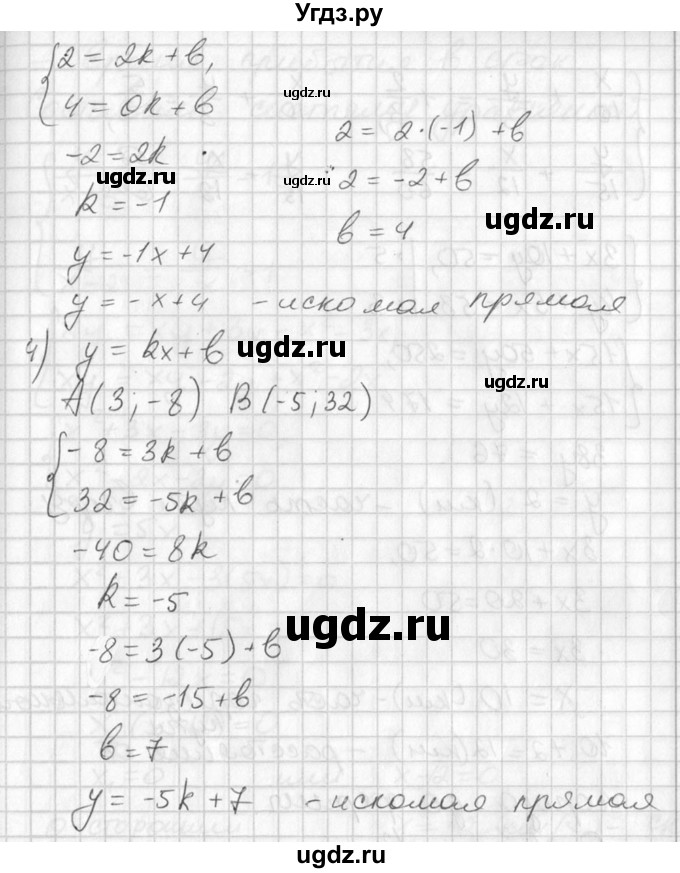 Угдз.ру
2 = 2k + b,
4 = 0k + b
-2 = 2k
k = -1
2 = 2·(-1) + b
2 = -2 + b
b = 4
y = -1x + 4
y = -x + 4 - искомая прямая
4) y = kx + b
A(3; -8) B(-5; 32)
-8 = 3k + b
32 = -5k + b
-40 = 8k
k = -5
-8 = 3(-5) + b
-8 = -15 + b
b = 7
y = -5k + 7 - искомая прямая
ugdz.ru
ugdz.ru
ugdz.ru
ugdz.ru
ugdz.ru
ugdz.ru
ugdz.ru
ugdz.ru
ugdz.ru